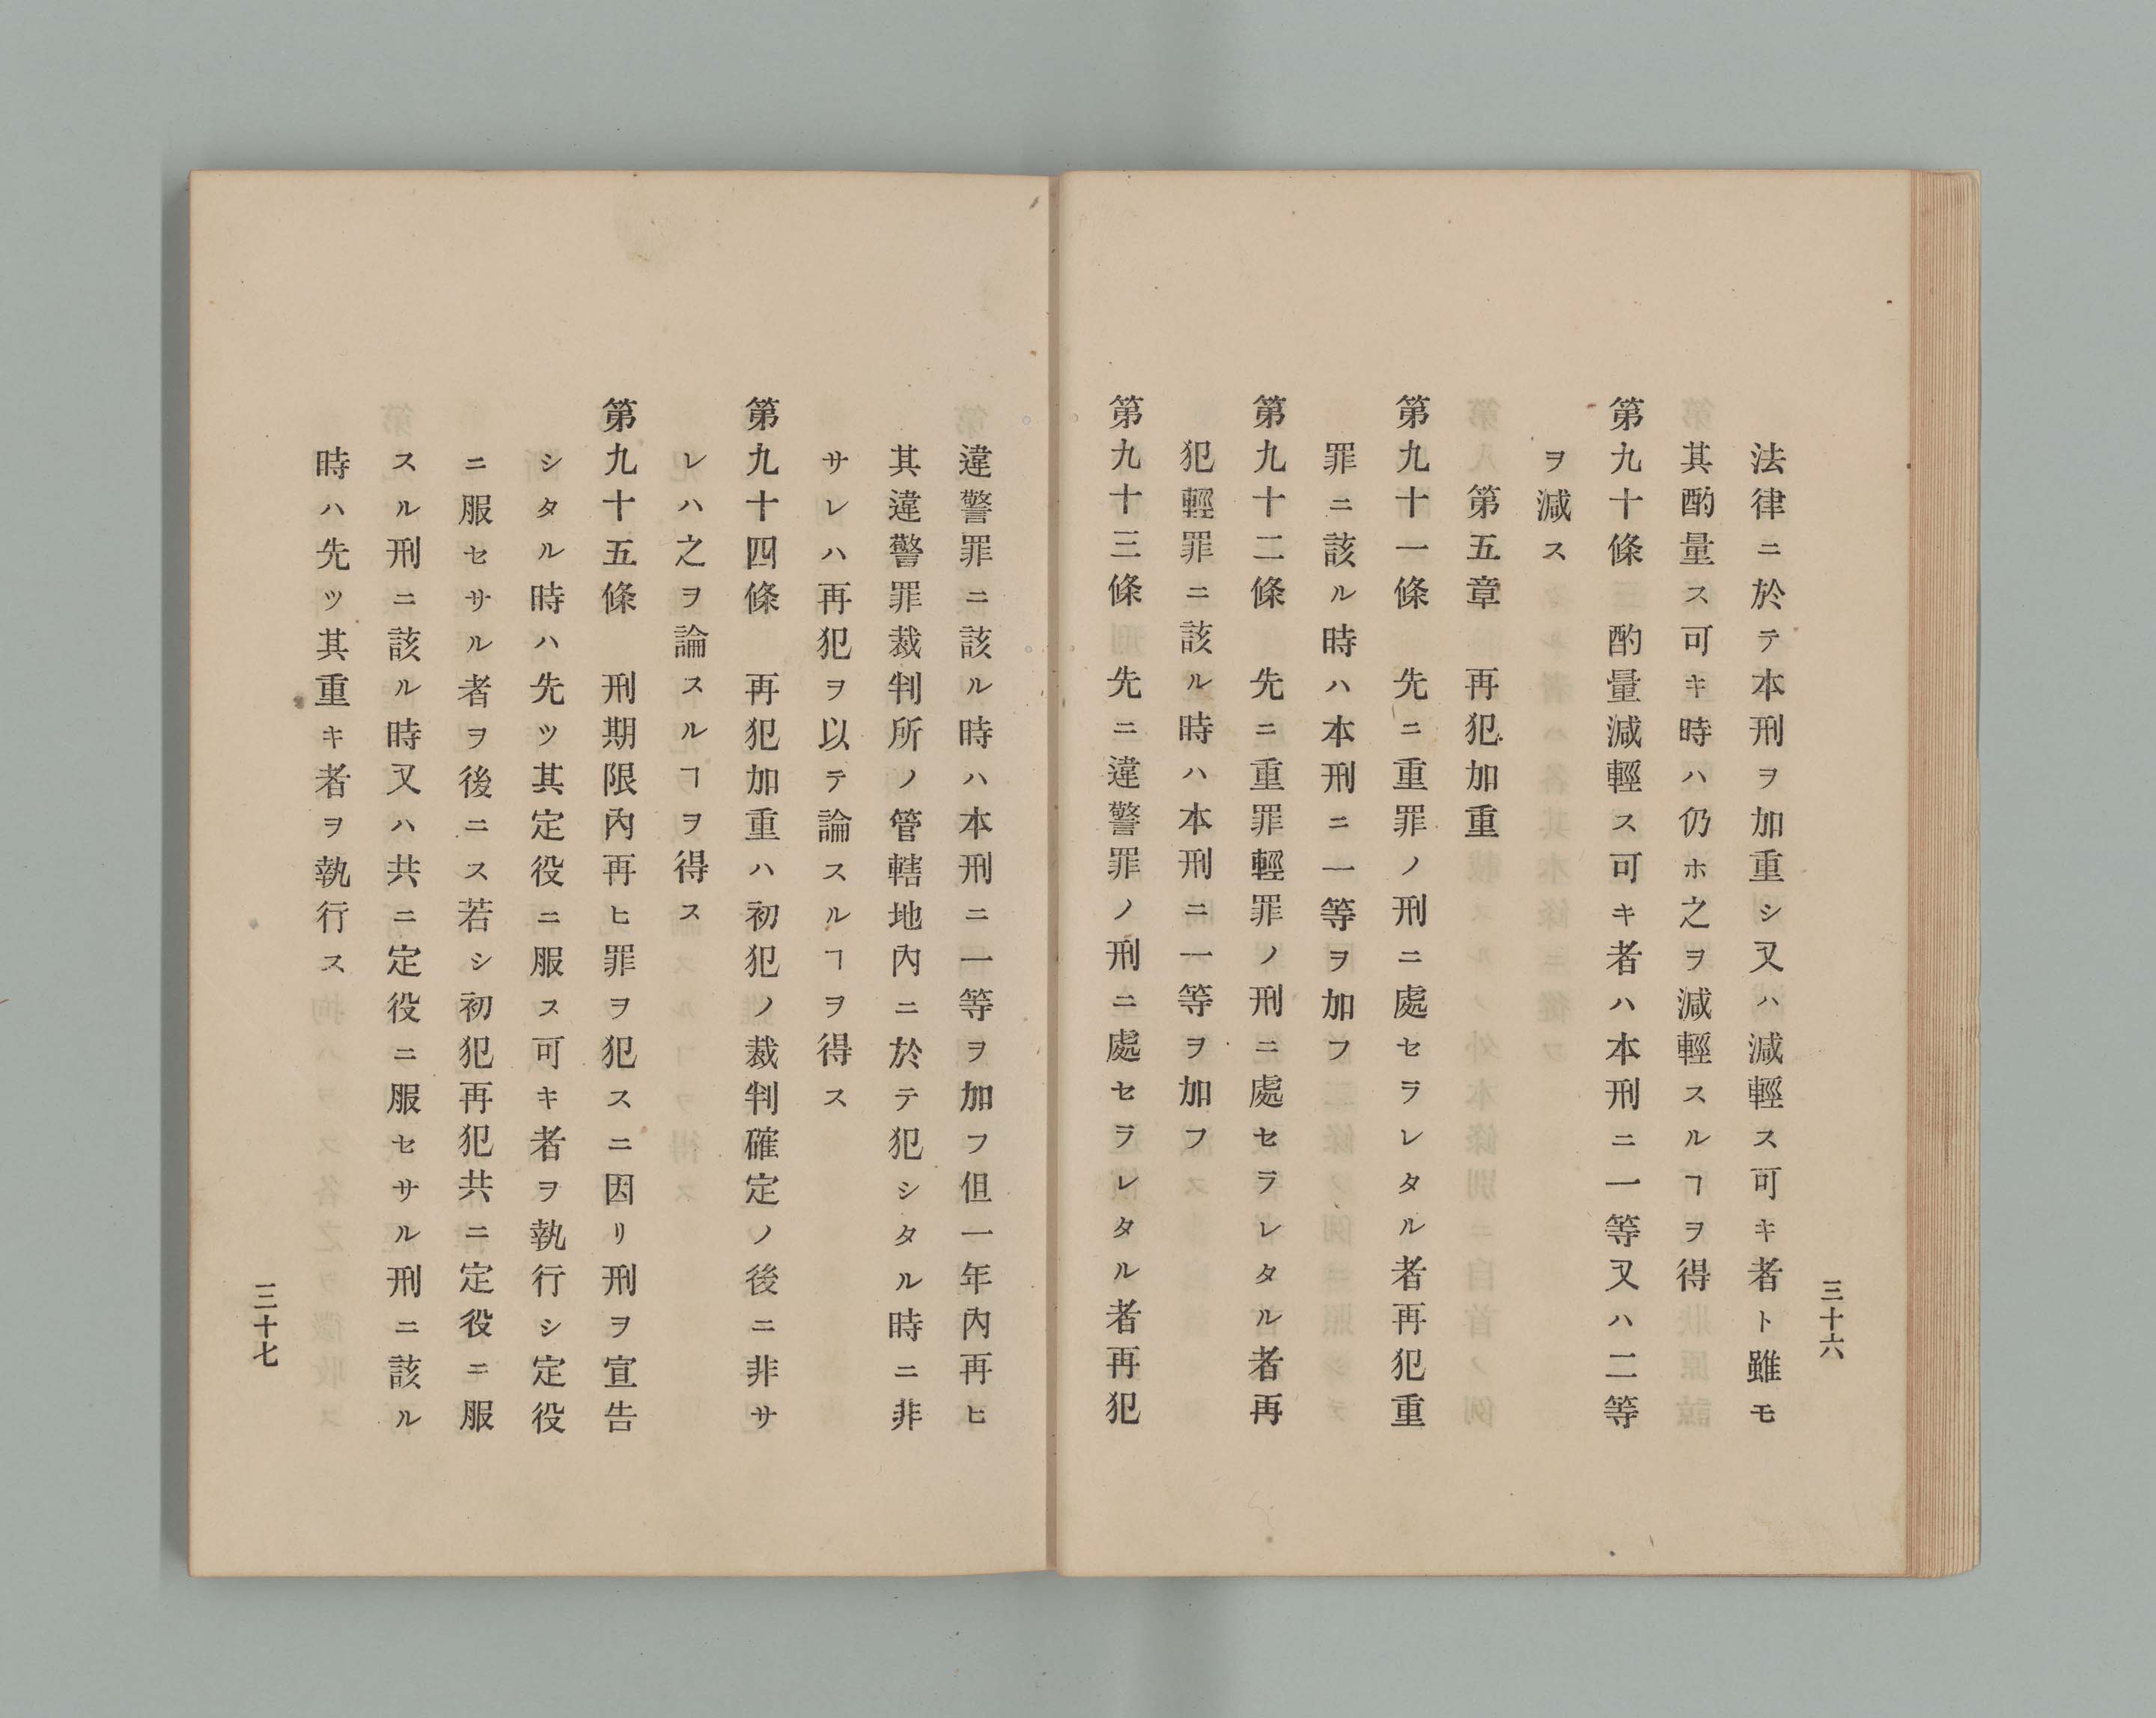 法律ニ於テ本刑ヲ加重シ又ハ減輕ス可キ者ト雖モ
其酌量ス可キ時ハ仍ホ之ヲ減輕スルヿヲ得
第九十條 酌量減輕ス可キ者ハ本刑ニ一等又ハ二等
ヲ減ス
第五章 再犯加重
第九十一條 先ニ重罪ノ刑ニ處セラレタル者再犯重
罪ニ該ル時ハ本刑ニ一等ヲ加フ
第九十二條 先ニ重罪輕罪ノ刑ニ處セラレタル者再
犯輕罪ニ該ル時ハ本刑ニ一等ヲ加フ
第九十三條 先ニ違警罪ノ刑ニ處セラレタル者再犯
三十六
違警罪ニ該ル時ハ本刑ニ一等ヲ加フ但一年內再ヒ
其違警罪裁判所ノ管轄地內ニ於テ犯シタル時ニ非
サレハ再犯ヲ以テ論スルヿヲ得ス
第九十四條 再犯加重ハ初犯ノ裁判確定ノ後ニ非サ
レハ之ヲ論スルヿヲ得ス
第九十五條 刑期限內再ヒ罪ヲ犯スニ因リ刑ヲ宣告
シタル時ハ先ツ其定役ニ服ス可キ者ヲ執行シ定役
ニ服セサル者ヲ後ニス若シ初犯再犯共ニ定役ニ服
スル刑ニ該ル時又ハ共ニ定役ニ服セサル刑ニ該ル
時ハ先ツ其重キ者ヲ執行ス
三十七